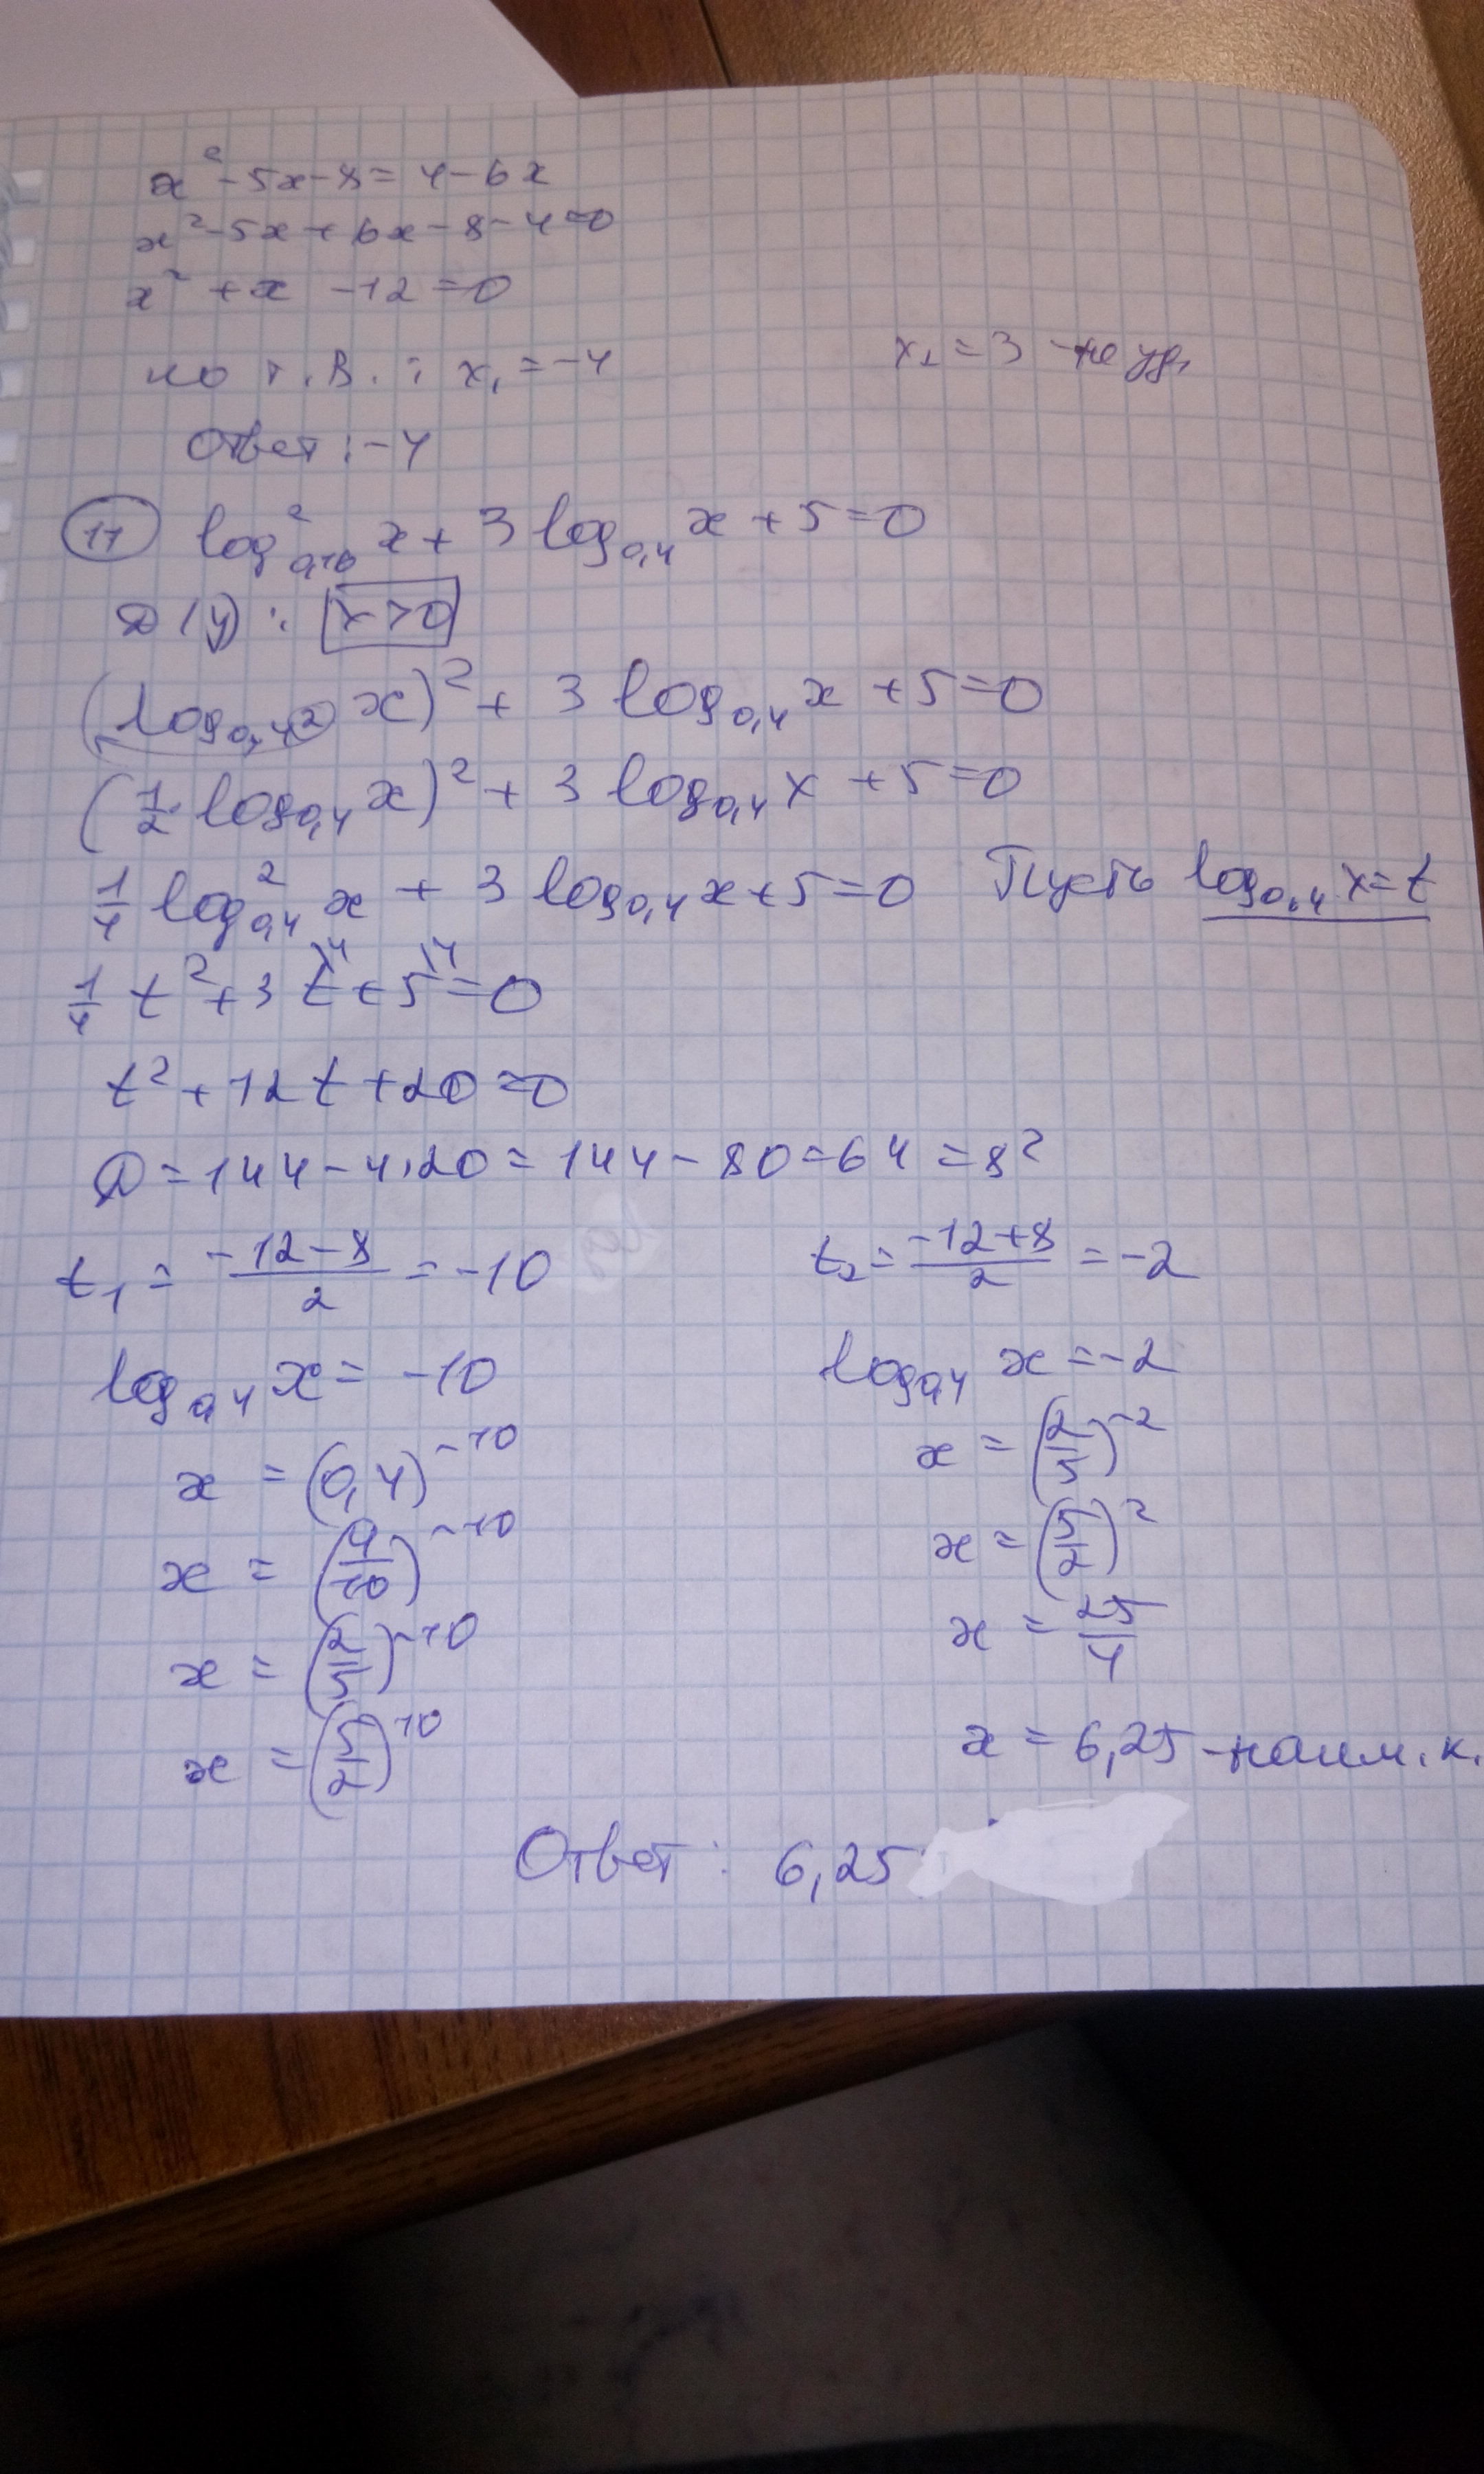 x² - 5x - 8 = 4 - 6x
x² - 5x + 6x - 8 - 4 = 0
x² + x - 12 = 0
по т. В. : x₁ = -4 x₂ = 3 - не уд.
Ответ: -4
11 log²₀,₁₆ x + 3 log₀,₄ x + 5 = 0
Д(у): x > 0
(log₀,₄² x)² + 3 log₀,₄ x + 5 = 0
(1/2 · log₀,₄ x)² + 3 log₀,₄ x + 5 = 0
1/4 log²₀,₄ x + 3 log₀,₄ x + 5 = 0 Пусть log₀,₄ x = t
1/4 t² + 3t\4 + 5\4 = 0
t² + 12t + 20 = 0
D = 144 - 4·20 = 144 - 80 = 64 = 8²
t₁ = (-12-8)/2 = -10 t₂ = (-12+8)/2 = -2
log₀,₄ x = -10 log₀,₄ x = -2
x = (0,4)⁻¹⁰ x = (2/5)⁻²
x = (4/10)⁻¹⁰ x = (5/2)²
x = (2/5)⁻¹⁰ x = 25/4
x = (5/2)¹⁰ x = 6,25 - наим. к.
Ответ: 6,25